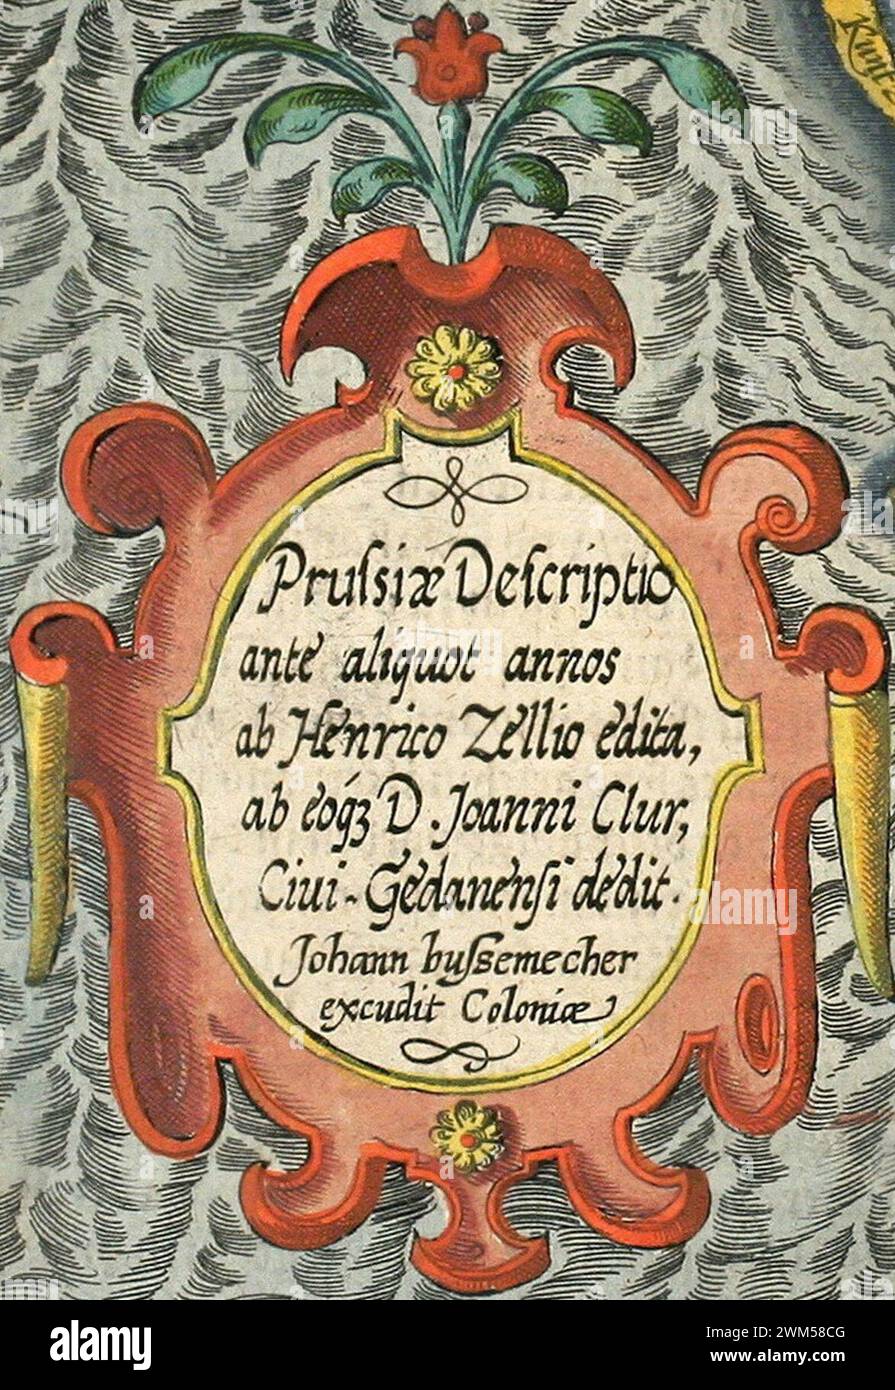 Kuni
Pruſsiæ Deſcriptio
ante aliquot annos
ab Henrico Zellio edita,
ab eoq́ꝫ D. Joanni Clur,
Ciui-Gedanenſi dedit.
Johann buſsemecher
excudit Coloniæ
alamy
alamy
Image ID: 2WM58CG
www.alamy.com